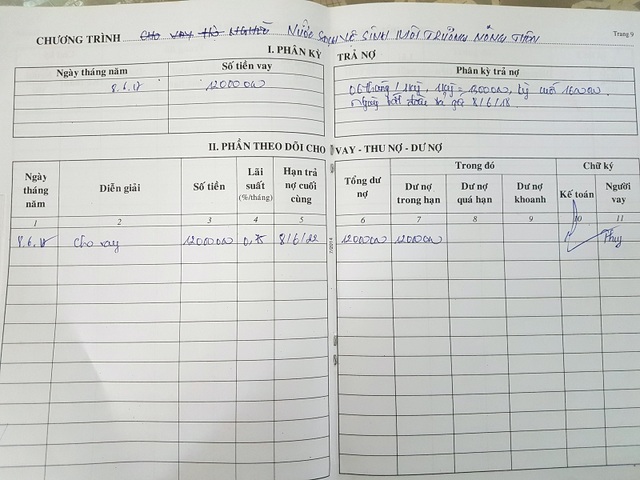 CHƯƠNG TRÌNH CHO VAY HỘ NGHÈO NƯỚC SẠCH VỆ SINH MÔI TRƯỜNG NÔNG THÔN Trang 9
I. PHÂN KỲ TRẢ NỢ
Ngày tháng năm Số tiền vay Phân kỳ trả nợ
8.6.17 12000000 06 tháng / 1 kỳ, 1 kỳ = kỳ cuối
Ngày bắt đầu trả gốc 8/6/18
II. PHẦN THEO DÕI CHO VAY - THU NỢ - DƯ NỢ
Ngày tháng năm Diễn giải Số tiền Lãi suất (%/tháng) Hạn trả nợ cuối cùng Tổng dư nợ Trong đó Chữ ký
Dư nợ trong hạn Dư nợ quá hạn Dư nợ khoanh Kế toán Người vay
1 2 3 4 5 6 7 8 9 10 11
8.6.17 Cho vay 12000000 0,75 8/6/22 12000000 12000000 Thuy